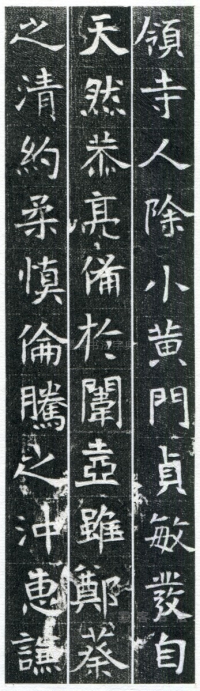 領寺人除小黄門貞敏發自
天然恭亮備於闈壼雖鄭蔡
之清約柔慎倫騰之沖惠謙